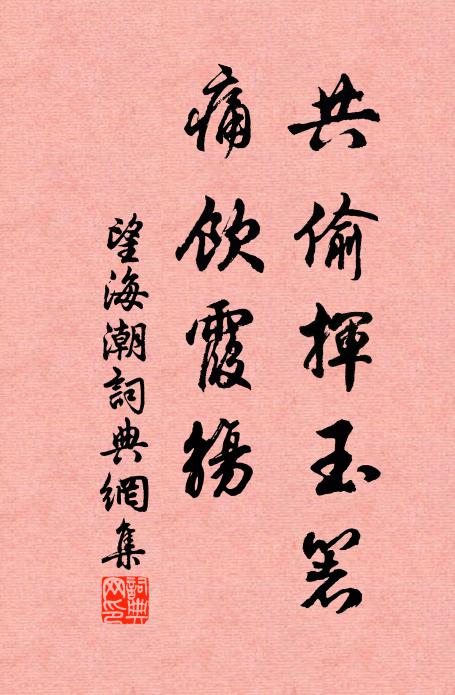 共偷揮玉箸
痛飲霞觴
望海潮詞典網集
詞典
网印